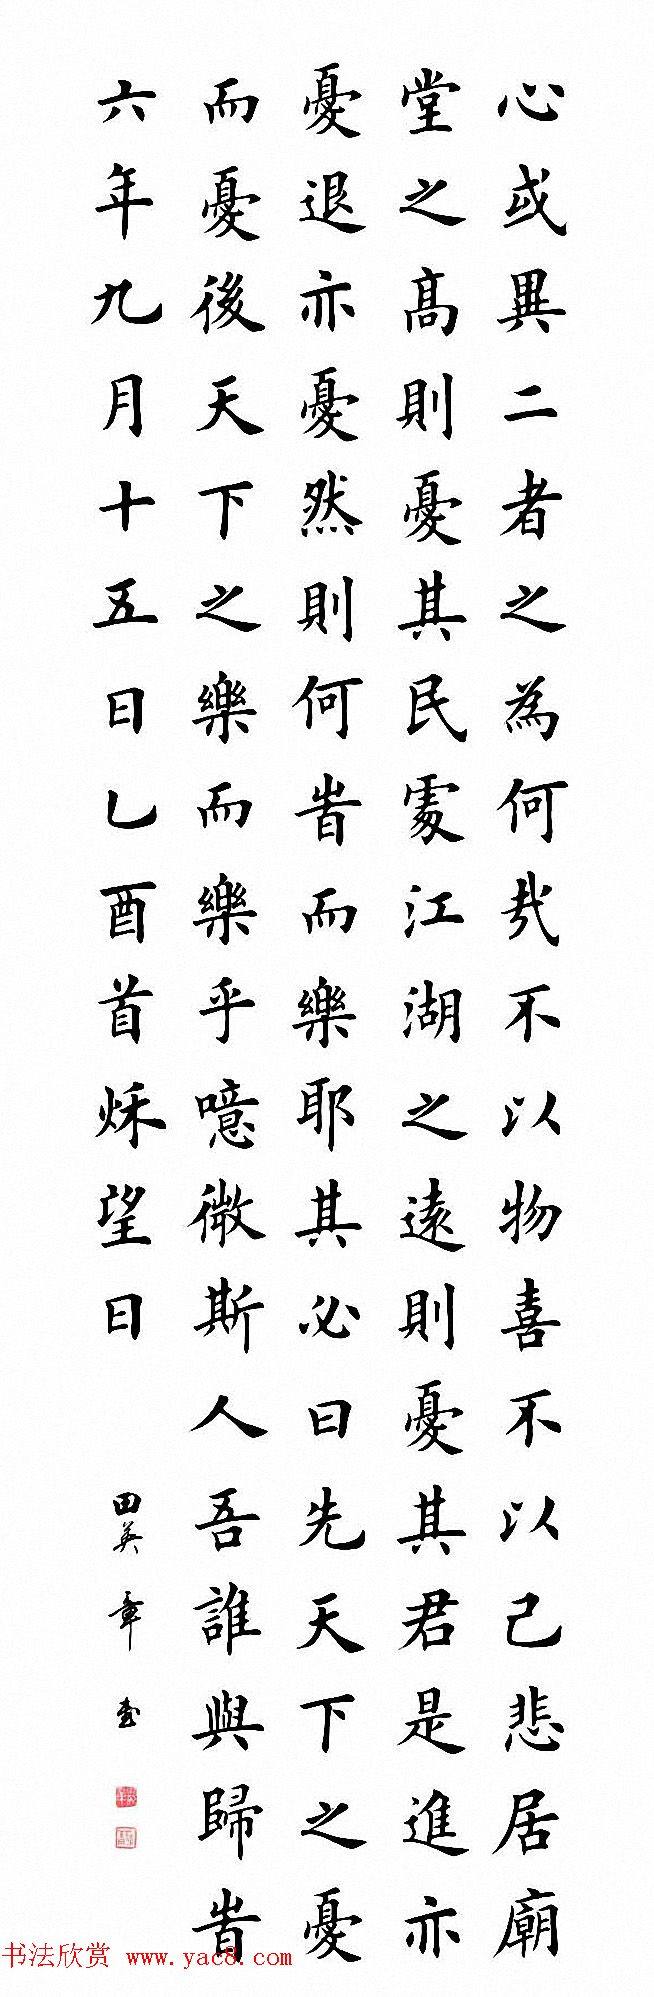 心或異二者之為何哉不以物喜不以己悲居廟
堂之高則憂其民處江湖之遠則憂其君是進亦
憂退亦憂然則何旹而樂耶其必曰先天下之憂
而憂後天下之樂而樂乎噫微斯人吾誰與歸旹
六年九月十五日乙酉首秌望日
田英章書
书法欣赏 www.yac8.com